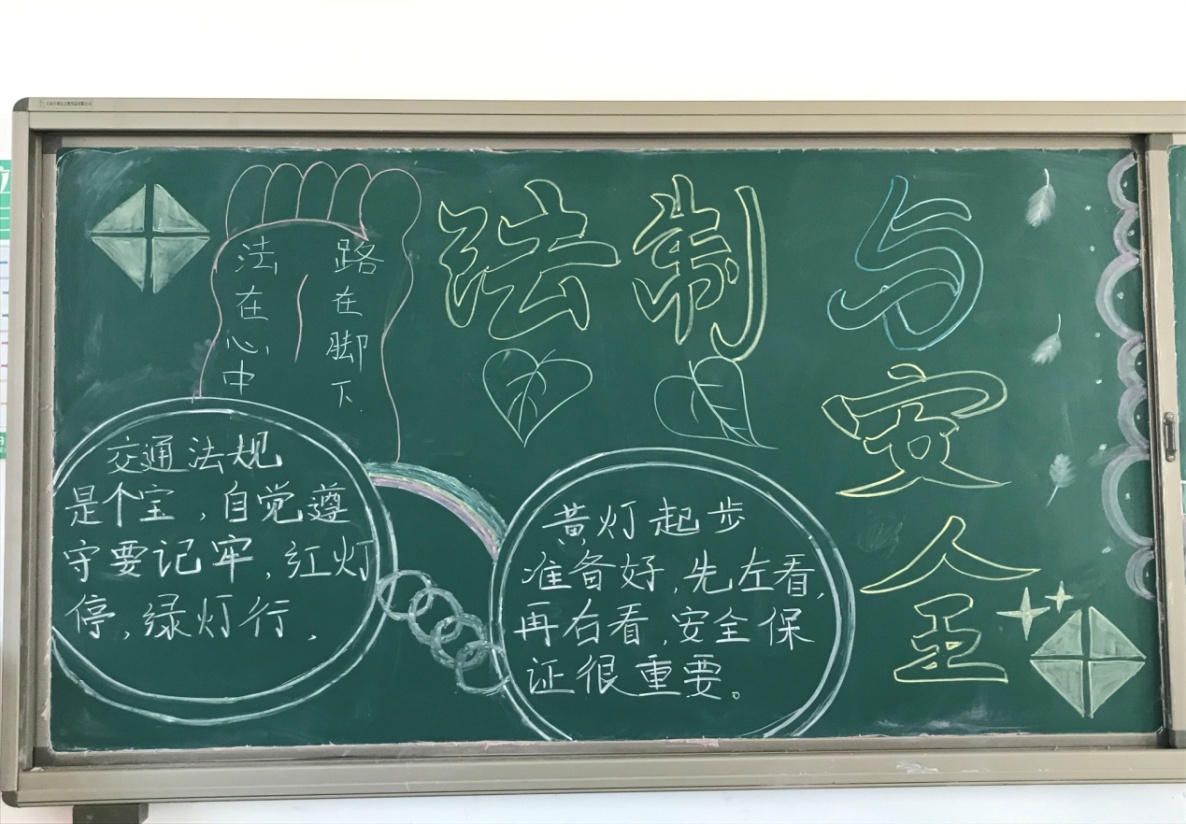 法制与安全
法在心中
路在脚下
交通法规
是个宝，自觉遵
守要记牢，红灯
停，绿灯行，
黄灯起步
准备好，先左看，
再右看，安全保
证很重要。